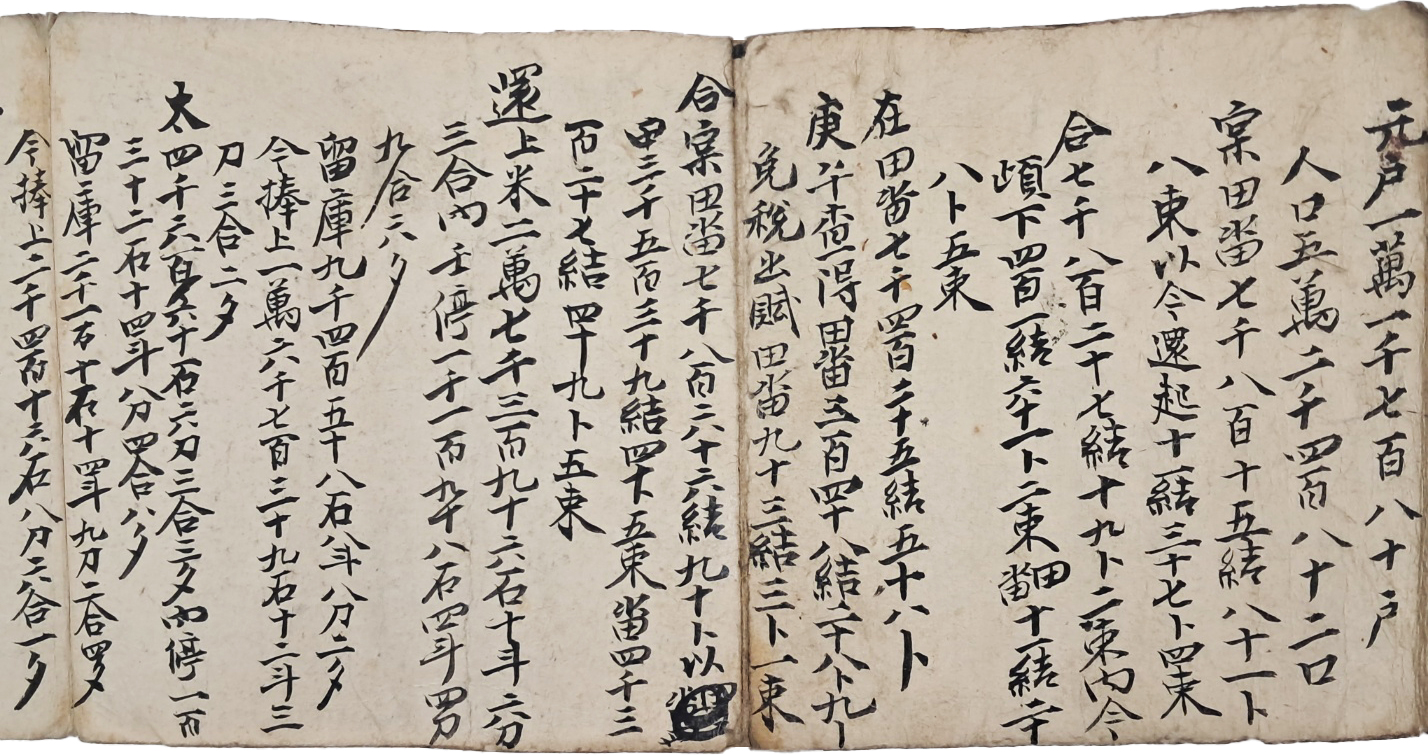 元戶一萬一千七百八十戶
人口五萬二千四百八十二口
宲田畓七千八百十五結八十一卜
八束以今還起十一結三十七卜四束
合七千八百二十七結十九卜二束內今
頉下四百一結六十一卜二束田畓十二結二十
八卜五束
在田畓七千四百二十五結五十八卜
庚午查得田畓三百四十八結二十八卜九卜
免稅出賦田畓九十三結三卜一束
合宲田畓七千八百六十六結九十卜以
田三千五百三十九結四十卜五束畓四千三
百二十七結四十九卜五束
還上米二萬七千三百九十六石十斗六分
三合內壬停一千一百九十八石四斗四分
九合六八夕
留庫九千四百五十八石八斗八刀二夕
今捧上一萬六千七百三十九石十二斗三
刀三合二夕
太四千六百六十石六刀三合三夕內停一百
三十二石十四斗八分四合八夕
留庫二千一百十石十四斗九刀二合四夕
今捧上二千四百十六石八刀六合一夕